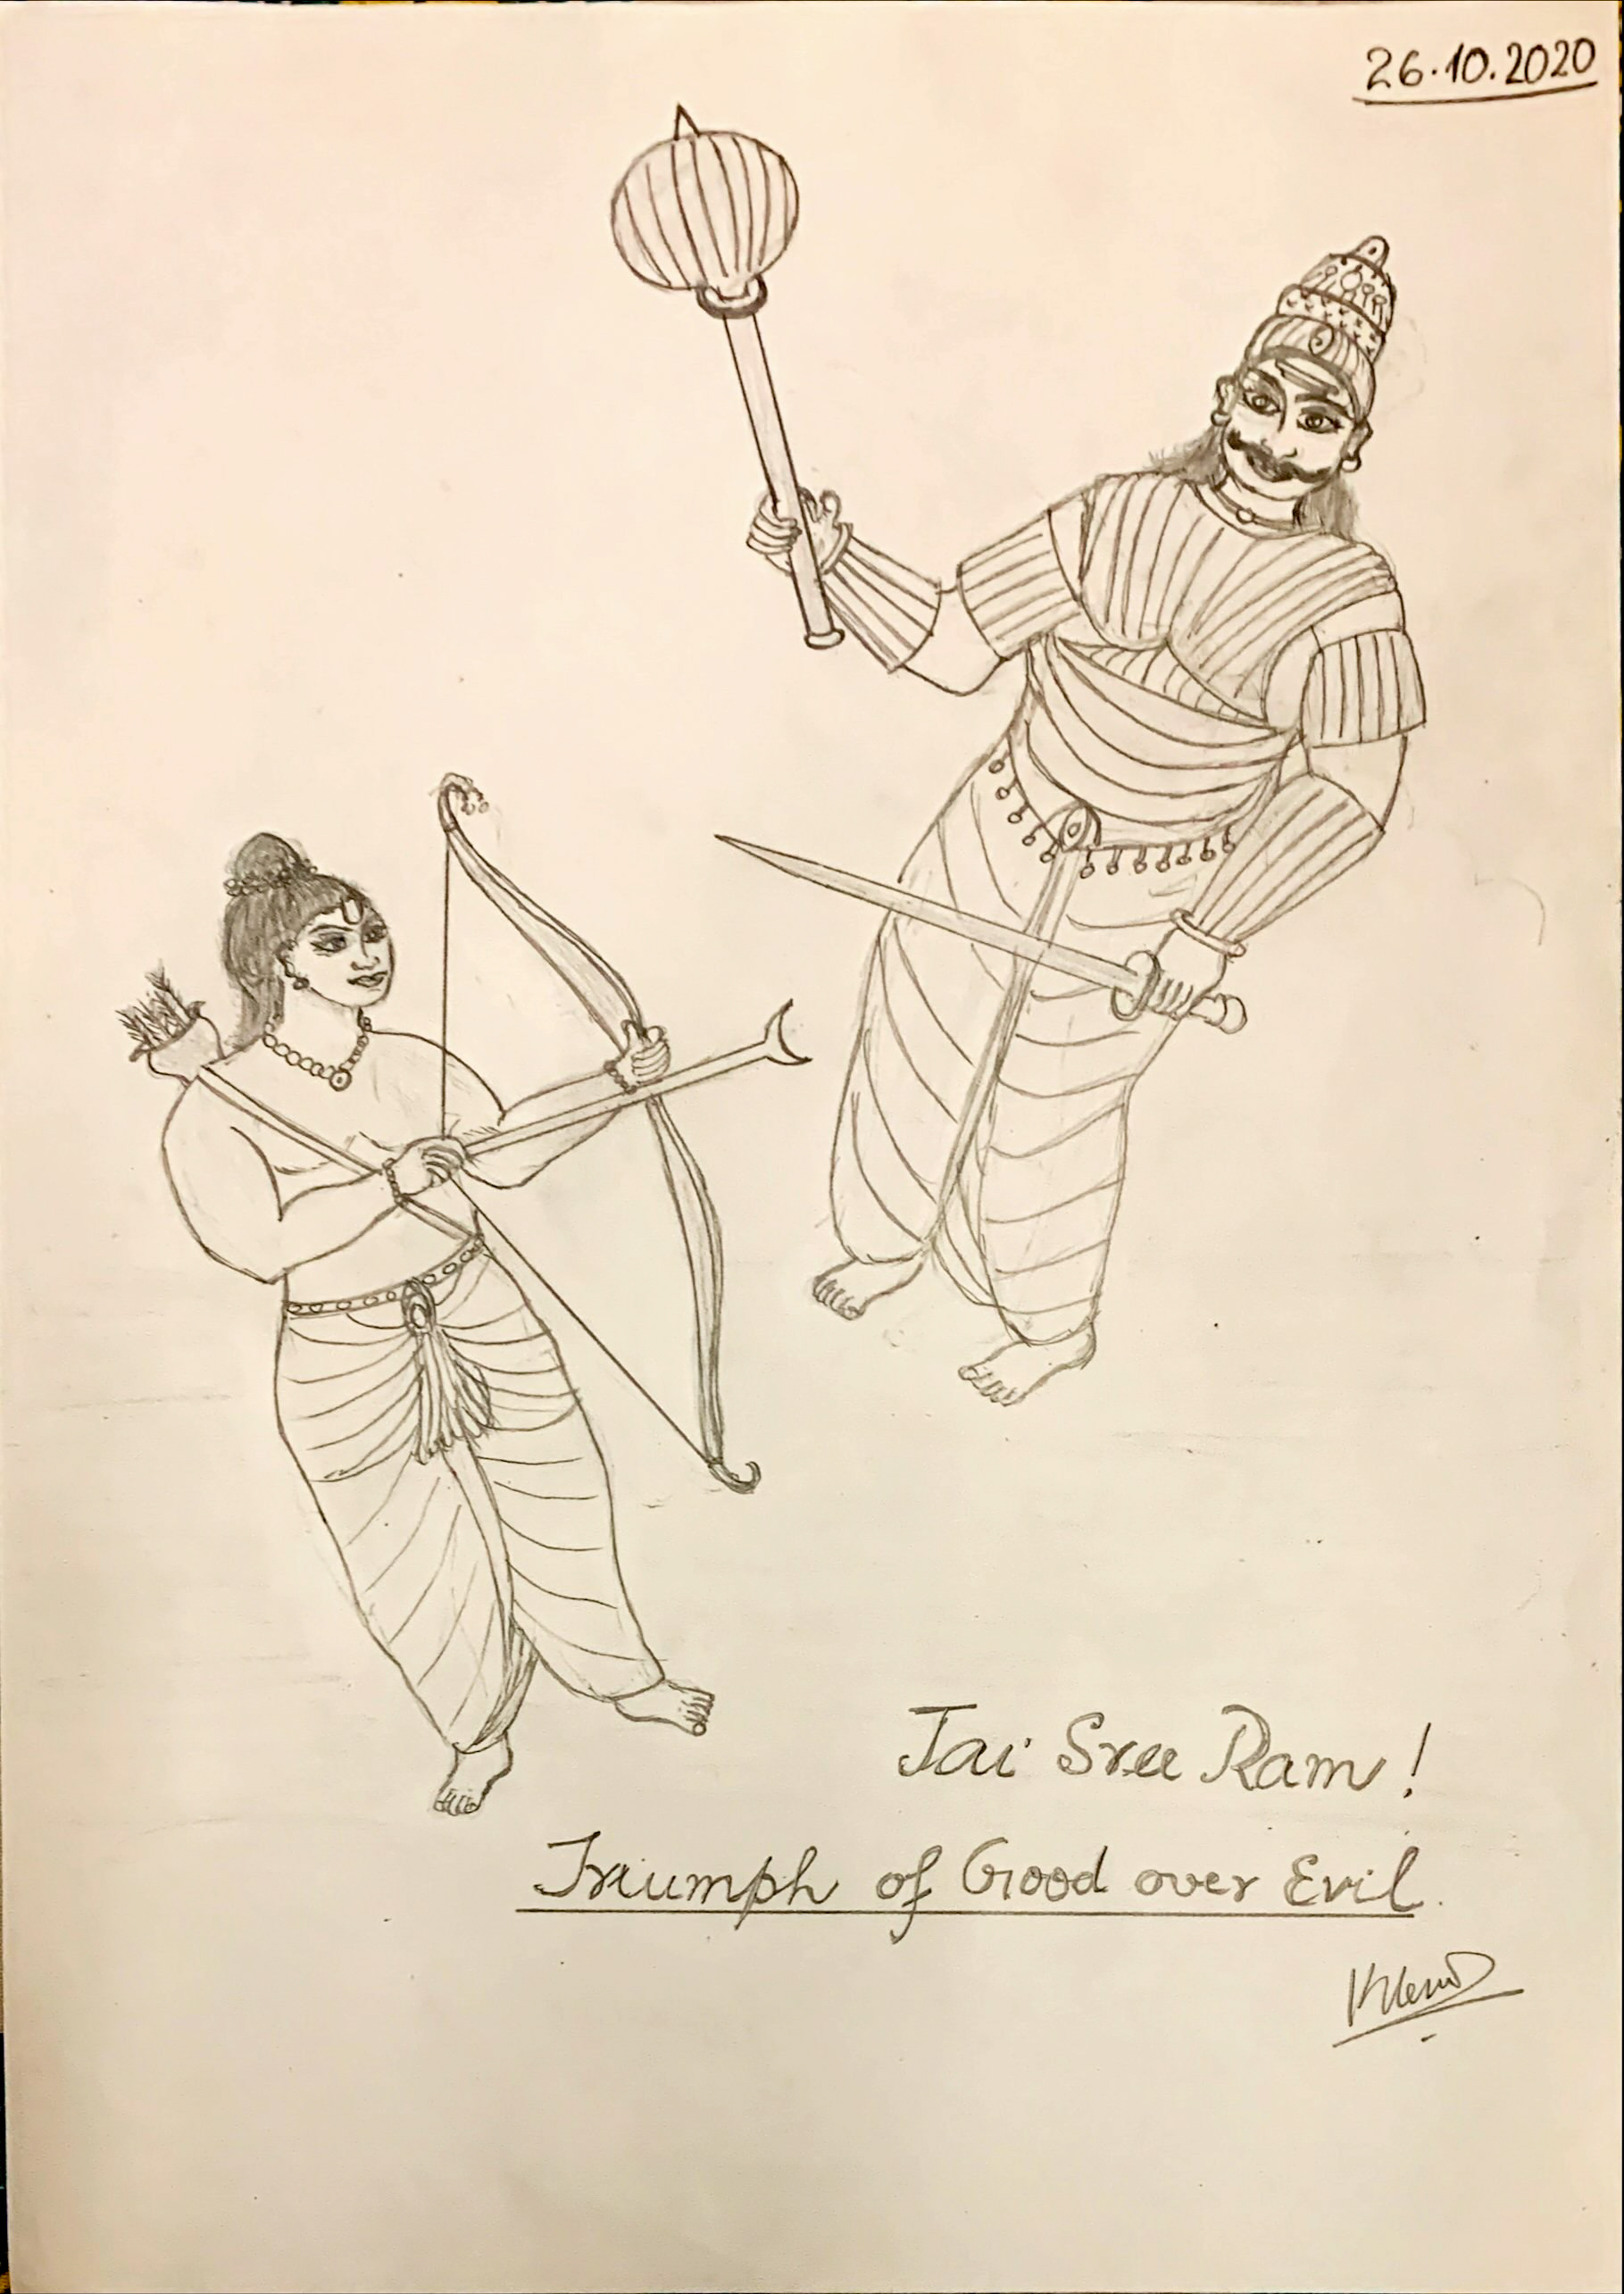 26.10.2020
Jai Sree Ram!
Triumph of Good over Evil.